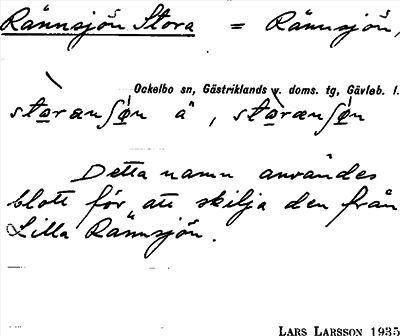 Rännsjön Stora = Rännsjön,
Ockelbo sn, Gästriklands v. doms. tg, Gävleb. l.
storænʃøn a, storænʃøn
Detta namn användes
blott för att skilja den från
Lilla Rännsjön.
LARS LARSSON 1935